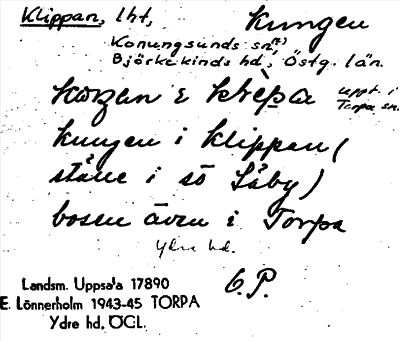 Klippan, lht, kungen
Konungsunds sn,
Björkekinds hd, Östg. län.
uppt. i
Torpa sn.
kungen i klippan (
ståne i så Säby)
bosen även i Torpa
Ydre hd.
G.P.
Landsm. Uppsala 17890
E. Lönnerholm 1943-45 TORPA
Ydre hd, ÖGL.